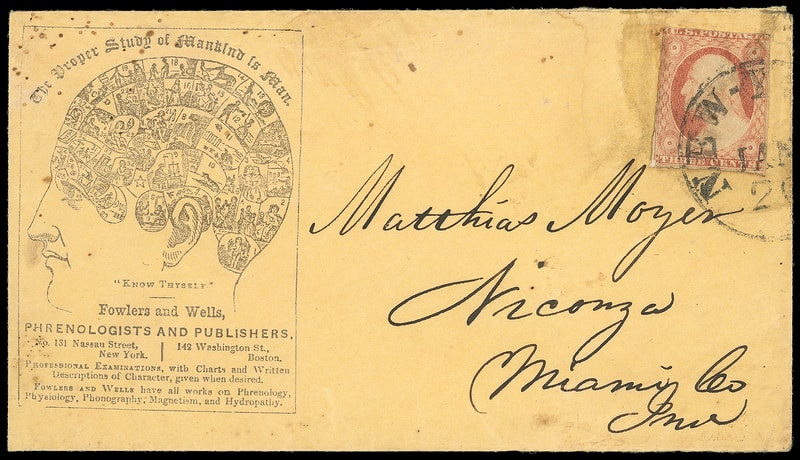 The Proper Study of Mankind is Man.
"KNOW THYSELF."
Fowlers and Wells,
PHRENOLOGISTS AND PUBLISHERS,
No. 131 Nassau Street,
New York.
142 Washington St.,
Boston.
PROFESSIONAL EXAMINATIONS, with Charts and Written
Descriptions of Character, given when desired.
FOWLERS AND WELLS have all works on Phrenology,
Physiology, Phonography, Magnetism, and Hydropathy.
U.S. POSTAGE
THREE CENTS
NEW-
JAN
Matthias Moyer
Niconza
Miami Co
Ind